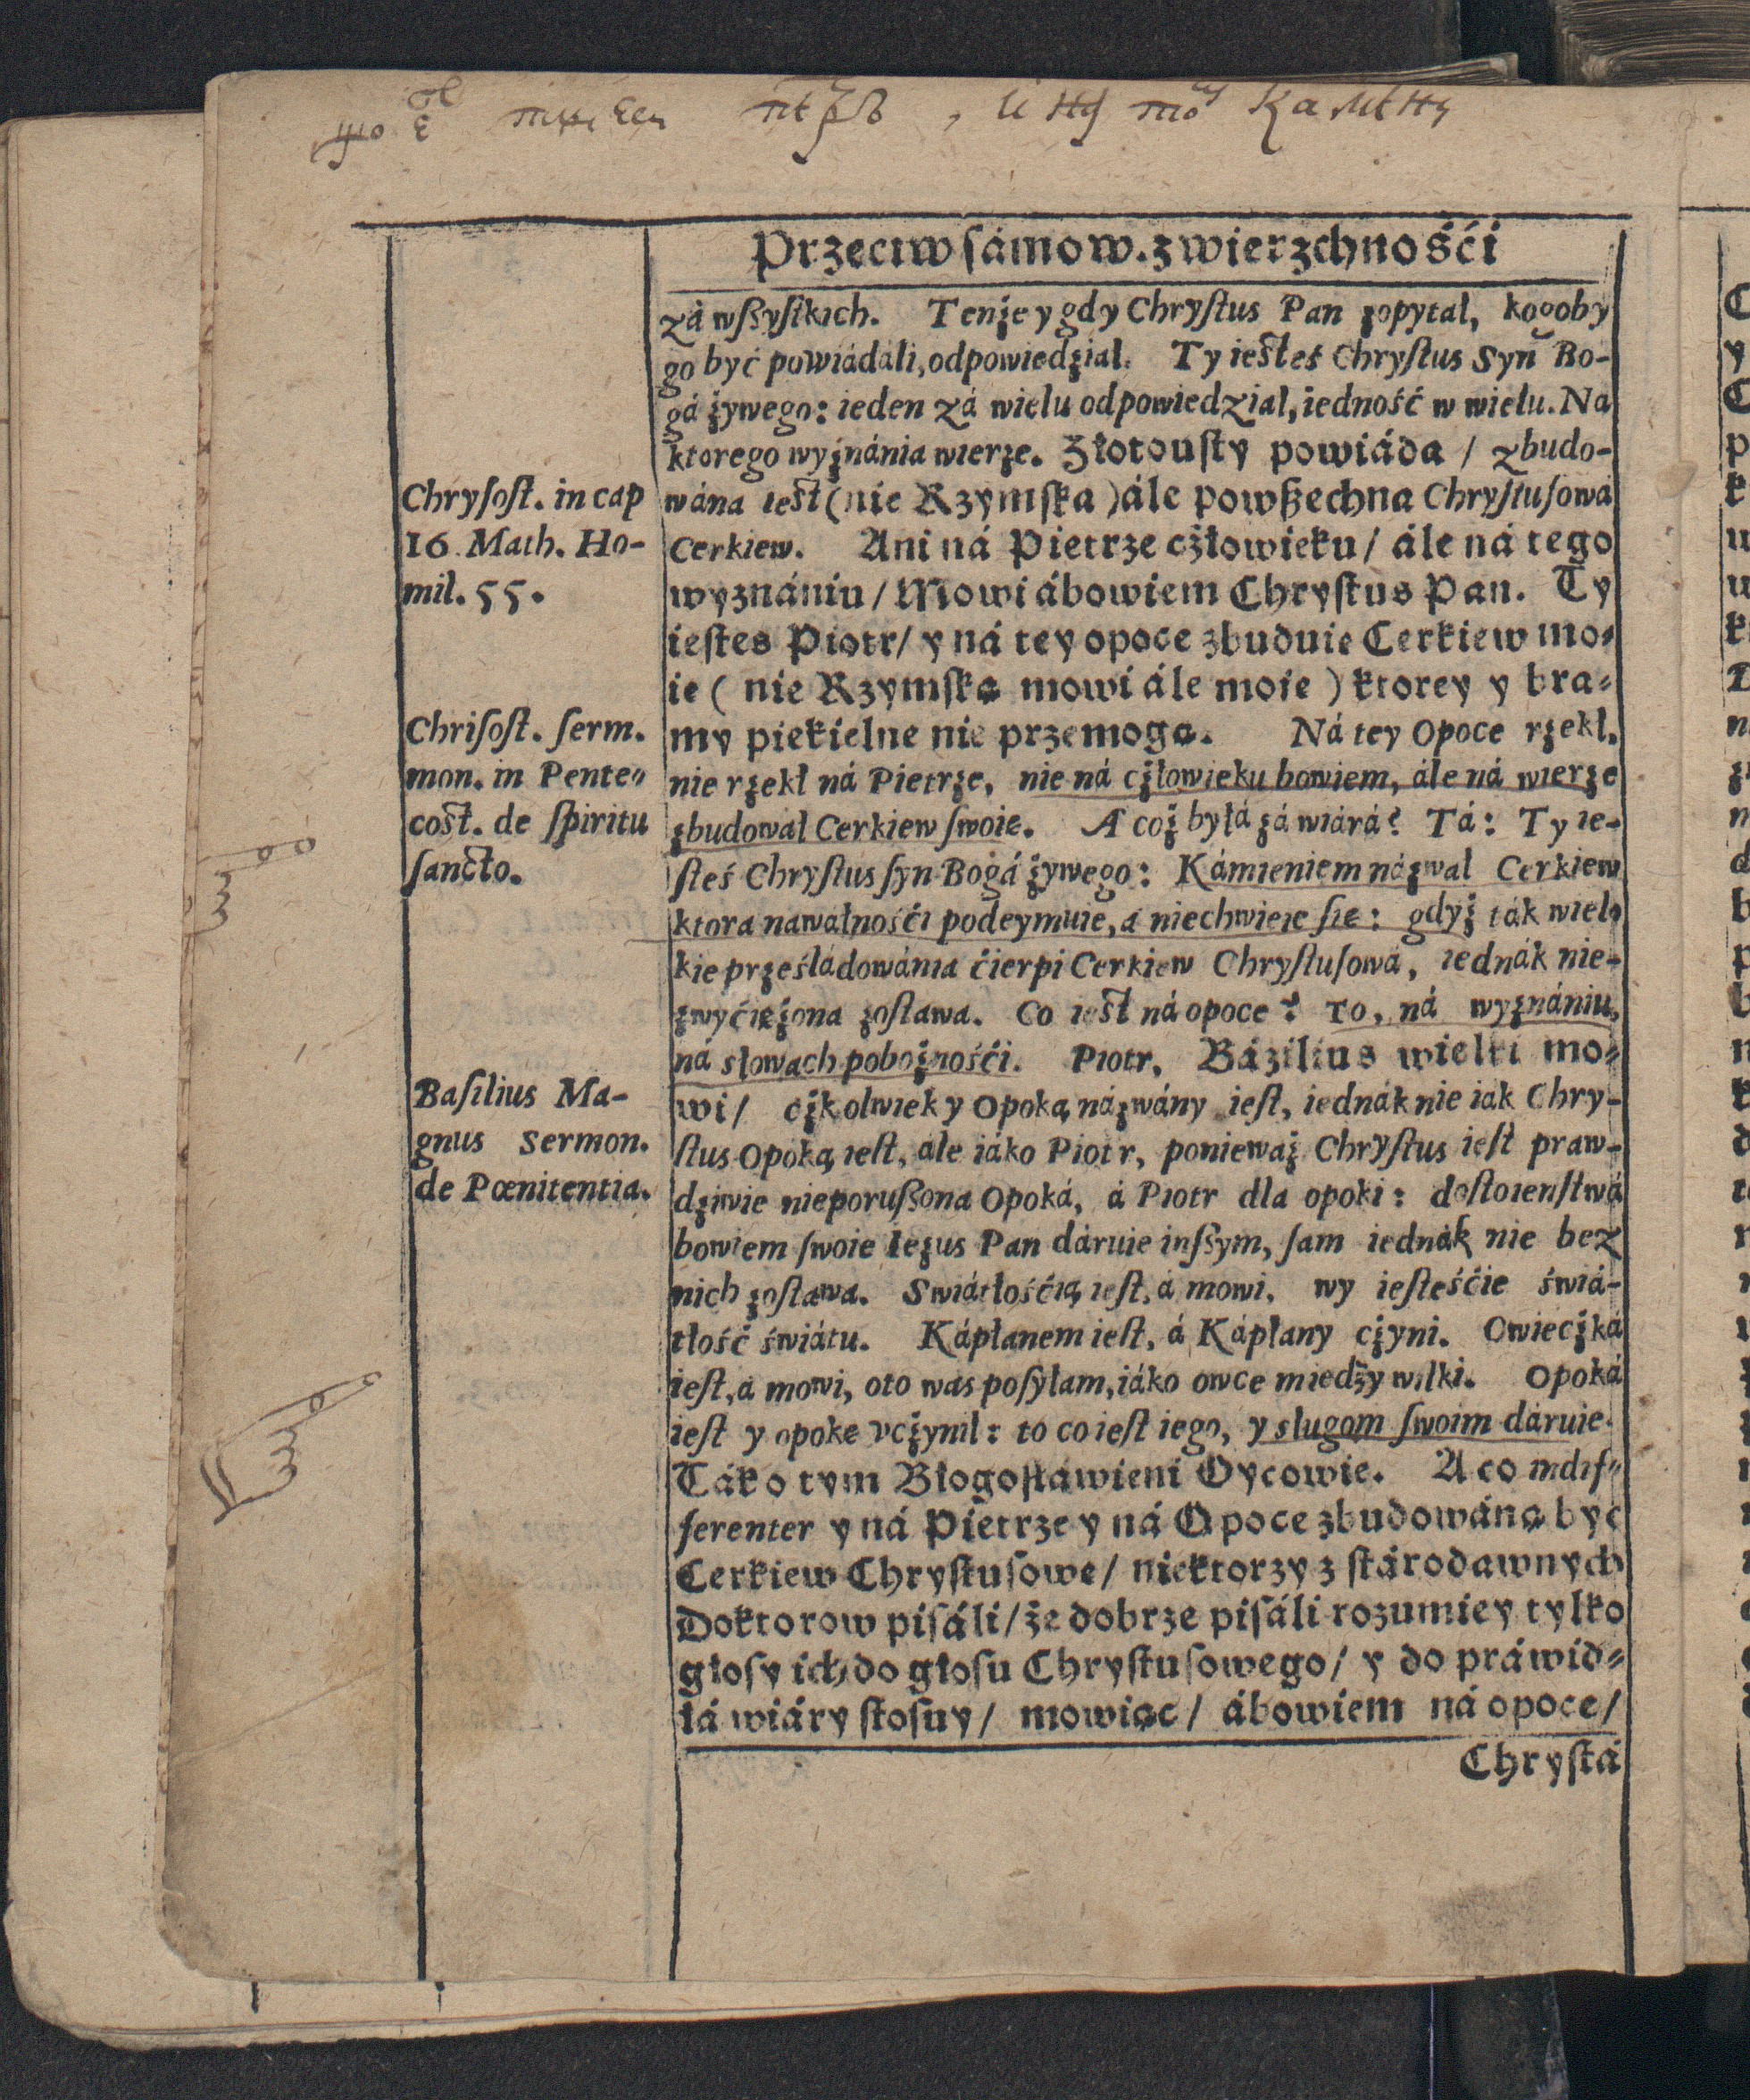 Przeciw sámow. zwierzchnośći
zá wſzyſtkich. Tenże y gdy Chryſtus Pan zopytal, kogoby
go być powiádáli, odpowiedzial. Ty ieſteś Chryſtus Syn Bo-
gá żywego: ieden zá wielu odpowiedzial, iedność w wielu. Na
ktorego wyznánia wierze. Złotouſty powiáda / zbudo-
wána ieſt (nie Rzymſka) ále powſzechna Chryſtuſowá
Cerkiew. Ani ná Pietrze człowieku / ále ná tego
wyznániu / Mowi ábowiem Chryſtus Pan. Ty
ieſtes Piotr / y ná tey opoce zbuduie Cerkiew mo-
ie (nie Rzymſką mowi ále moie) ktorey y bra-
my piekielne nie przemogą. Ná tey Opoce rzekł,
nie rzekł ná Pietrze, nie ná człowieku bowiem, ále ná wierze
zbudował Cerkiew ſwoie. A coż byłá zá wiárá? Tá: Ty ie-
ſteś Chryſtus ſyn Bogá żywego: Kámieniem názwal Cerkiew
ktora nawałnośći podeymuie, á niechwieie ſie: gdyż ták wiel-
kie prześládowánia ćierpi Cerkiew Chryſtuſowá, iednák nie-
zwyćiężona zoſtawa. Co ieſt ná opoce? To, ná wyznániu,
ná słowach pobożnośći. Piotr, Bázilius wielki mo-
wi / czkolwiek y Opoką názwány ieſt, iednák nie iak Chry-
ſtus Opoką ieſt, ale iáko Piotr, poniewaz Chryſtus ieſt praw-
dziwie nieporuſzona Opoká, á Piotr dla opoki: doſtoienſtwá
bowiem ſwoie Iezus Pan dáruie inſzym, ſam iednák nie bez
nich zoſtawa. Swiátłośćią ieſt, á mowi, wy ieſteśćie świá-
tłość świátu. Kápłanem ieſt, á Kápłany czyni. Owieczká
ieſt, á mowi, oto was poſyłam, iáko owce miedzy wilki. Opoká
ieſt y opoke vczynil: to co ieſt iego, y slugom ſwoim dáruie.
Ták o tym Błogoſłáwieni Oycowie. A co indif-
ferenter y ná Pietrze y ná Opoce zbudowáną być
Cerkiew Chryſtuſowe / niektorzy z ſtárodawnych
Doktorow piſáli / że dobrze piſáli rozumiey tylko
głoſy ich do głoſu Chryſtuſowego / y do práwid-
łá wiáry ſtoſuy / mowiąc / ábowiem ná opoce /
Chryſtá
Chryſoſt. in cap
16. Math. Ho-
mil. 55.
Chriſoſt. ſerm.
mon. in Pente-
coſt. de ſpiritu
ſancto.
Baſilius Ma-
gnus Sermon.
de Pœnitentia.